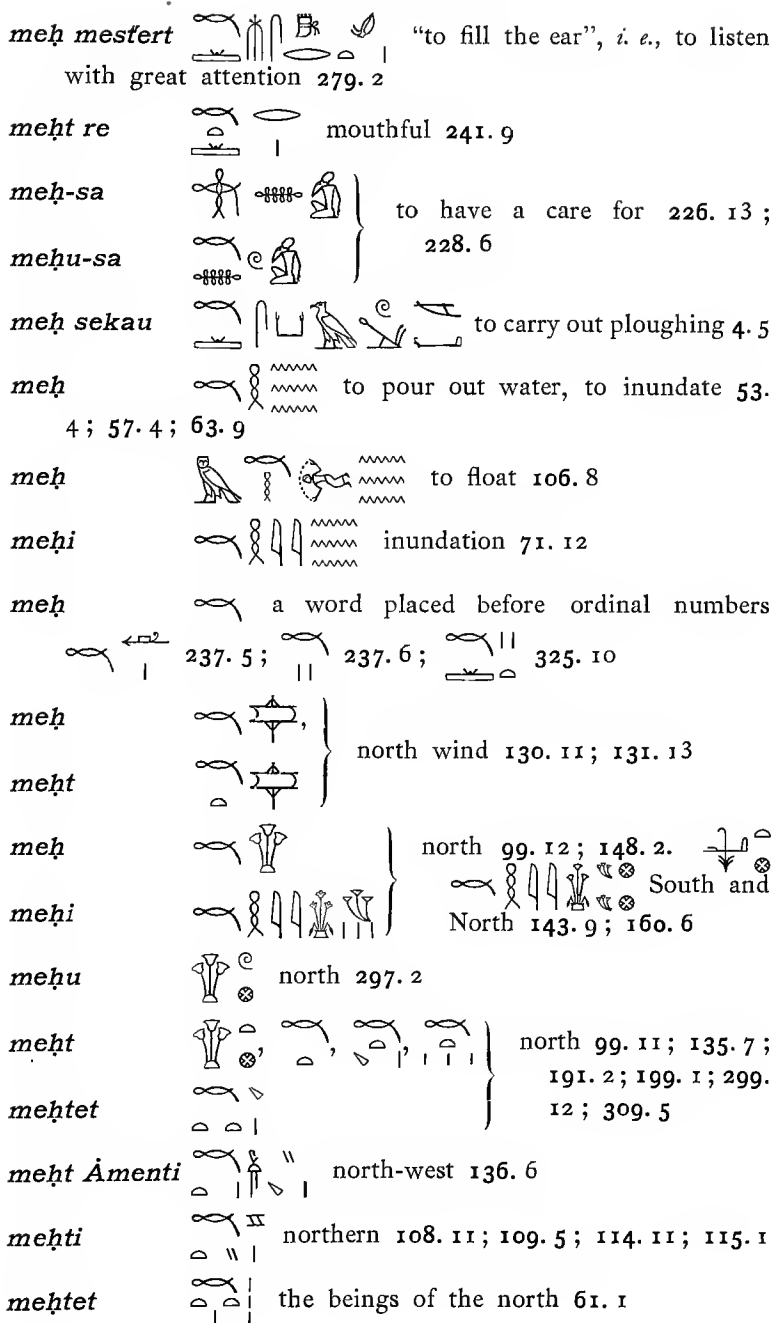 meḥ mesťert “to fill the ear”, i. e., to listen
with great attention 279. 2
meḥt re mouthful 241. 9
meḥ-sa
to have a care for 226. 13 ;
meḥu-sa
228. 6
meḥ sekau to carry out ploughing 4. 5
meḥ to pour out water, to inundate 53.
4 ; 57. 4 ; 63. 9
meḥ to float 106. 8
meḥi inundation 71. 12
meḥ a word placed before ordinal numbers
237. 5 ; 237. 6 ; 325. 10
meḥ
north wind 130. 11 ; 131. 13
meḥt
meḥ north 99. 12 ; 148. 2.
South and
meḥi North 143. 9 ; 160. 6
meḥu north 297. 2
meḥt north 99. 11 ; 135. 7 ;
191. 2 ; 199. 1 ; 299.
meḥtet 12 ; 309. 5
meḥt Ȧmenti north-west 136. 6
meḥti northern 108. 11 ; 109. 5 ; 114. 11 ; 115. 1
meḥtet the beings of the north 61. 1